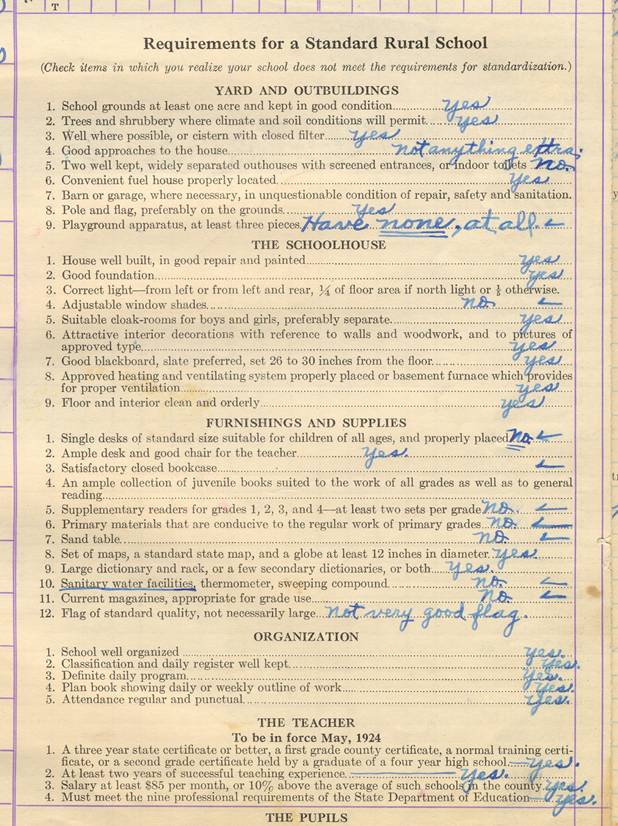 T
Requirements for a Standard Rural School
(Check items in which you realize your school does not meet the requirements for standardization.)
YARD AND OUTBUILDINGS
1. School grounds at least one acre and kept in good condition yes
2. Trees and shrubbery where climate and soil conditions will permit yes
3. Well where possible, or cistern with closed filter yes
4. Good approaches to the house not anything extra.
5. Two well kept, widely separated outhouses with screened entrances, or indoor toilets no.
6. Convenient fuel house properly located yes
7. Barn or garage, where necessary, in unquestionable condition of repair, safety and sanitation.
8. Pole and flag, preferably on the grounds yes
9. Playground apparatus, at least three pieces Have none, at all. ←
THE SCHOOLHOUSE
1. House well built, in good repair and painted yes
2. Good foundation yes
3. Correct light—from left or from left and rear, ¼ of floor area if north light or ⅕ otherwise.
4. Adjustable window shades no. ←
5. Suitable cloak-rooms for boys and girls, preferably separate yes
6. Attractive interior decorations with reference to walls and woodwork, and to pictures of
approved type yes
7. Good blackboard, slate preferred, set 26 to 30 inches from the floor yes
8. Approved heating and ventilating system properly placed or basement furnace which provides
for proper ventilation yes
9. Floor and interior clean and orderly yes
FURNISHINGS AND SUPPLIES
1. Single desks of standard size suitable for children of all ages, and properly placed no. ←
2. Ample desk and good chair for the teacher yes.
3. Satisfactory closed bookcase ←
4. An ample collection of juvenile books suited to the work of all grades as well as to general
reading
5. Supplementary readers for grades 1, 2, 3, and 4—at least two sets per grade no. ←
6. Primary materials that are conducive to the regular work of primary grades no. ←
7. Sand table no ←
8. Set of maps, a standard state map, and a globe at least 12 inches in diameter yes.
9. Large dictionary and rack, or a few secondary dictionaries, or both yes.
10. Sanitary water facilities, thermometer, sweeping compound no. ←
11. Current magazines, appropriate for grade use no. ←
12. Flag of standard quality, not necessarily large not very good flag.
ORGANIZATION
1. School well organized yes.
2. Classification and daily register well kept yes.
3. Definite daily program yes.
4. Plan book showing daily or weekly outline of work yes.
5. Attendance regular and punctual yes.
THE TEACHER
To be in force May, 1924
1. A three year state certificate or better, a first grade county certificate, a normal training certi-
ficate, or a second grade certificate held by a graduate of a four year high school. yes.
2. At least two years of successful teaching experience. yes.
3. Salary at least $85 per month, or 10% above the average of such schools in the county. yes.
4. Must meet the nine professional requirements of the State Department of Education yes.
THE PUPILS